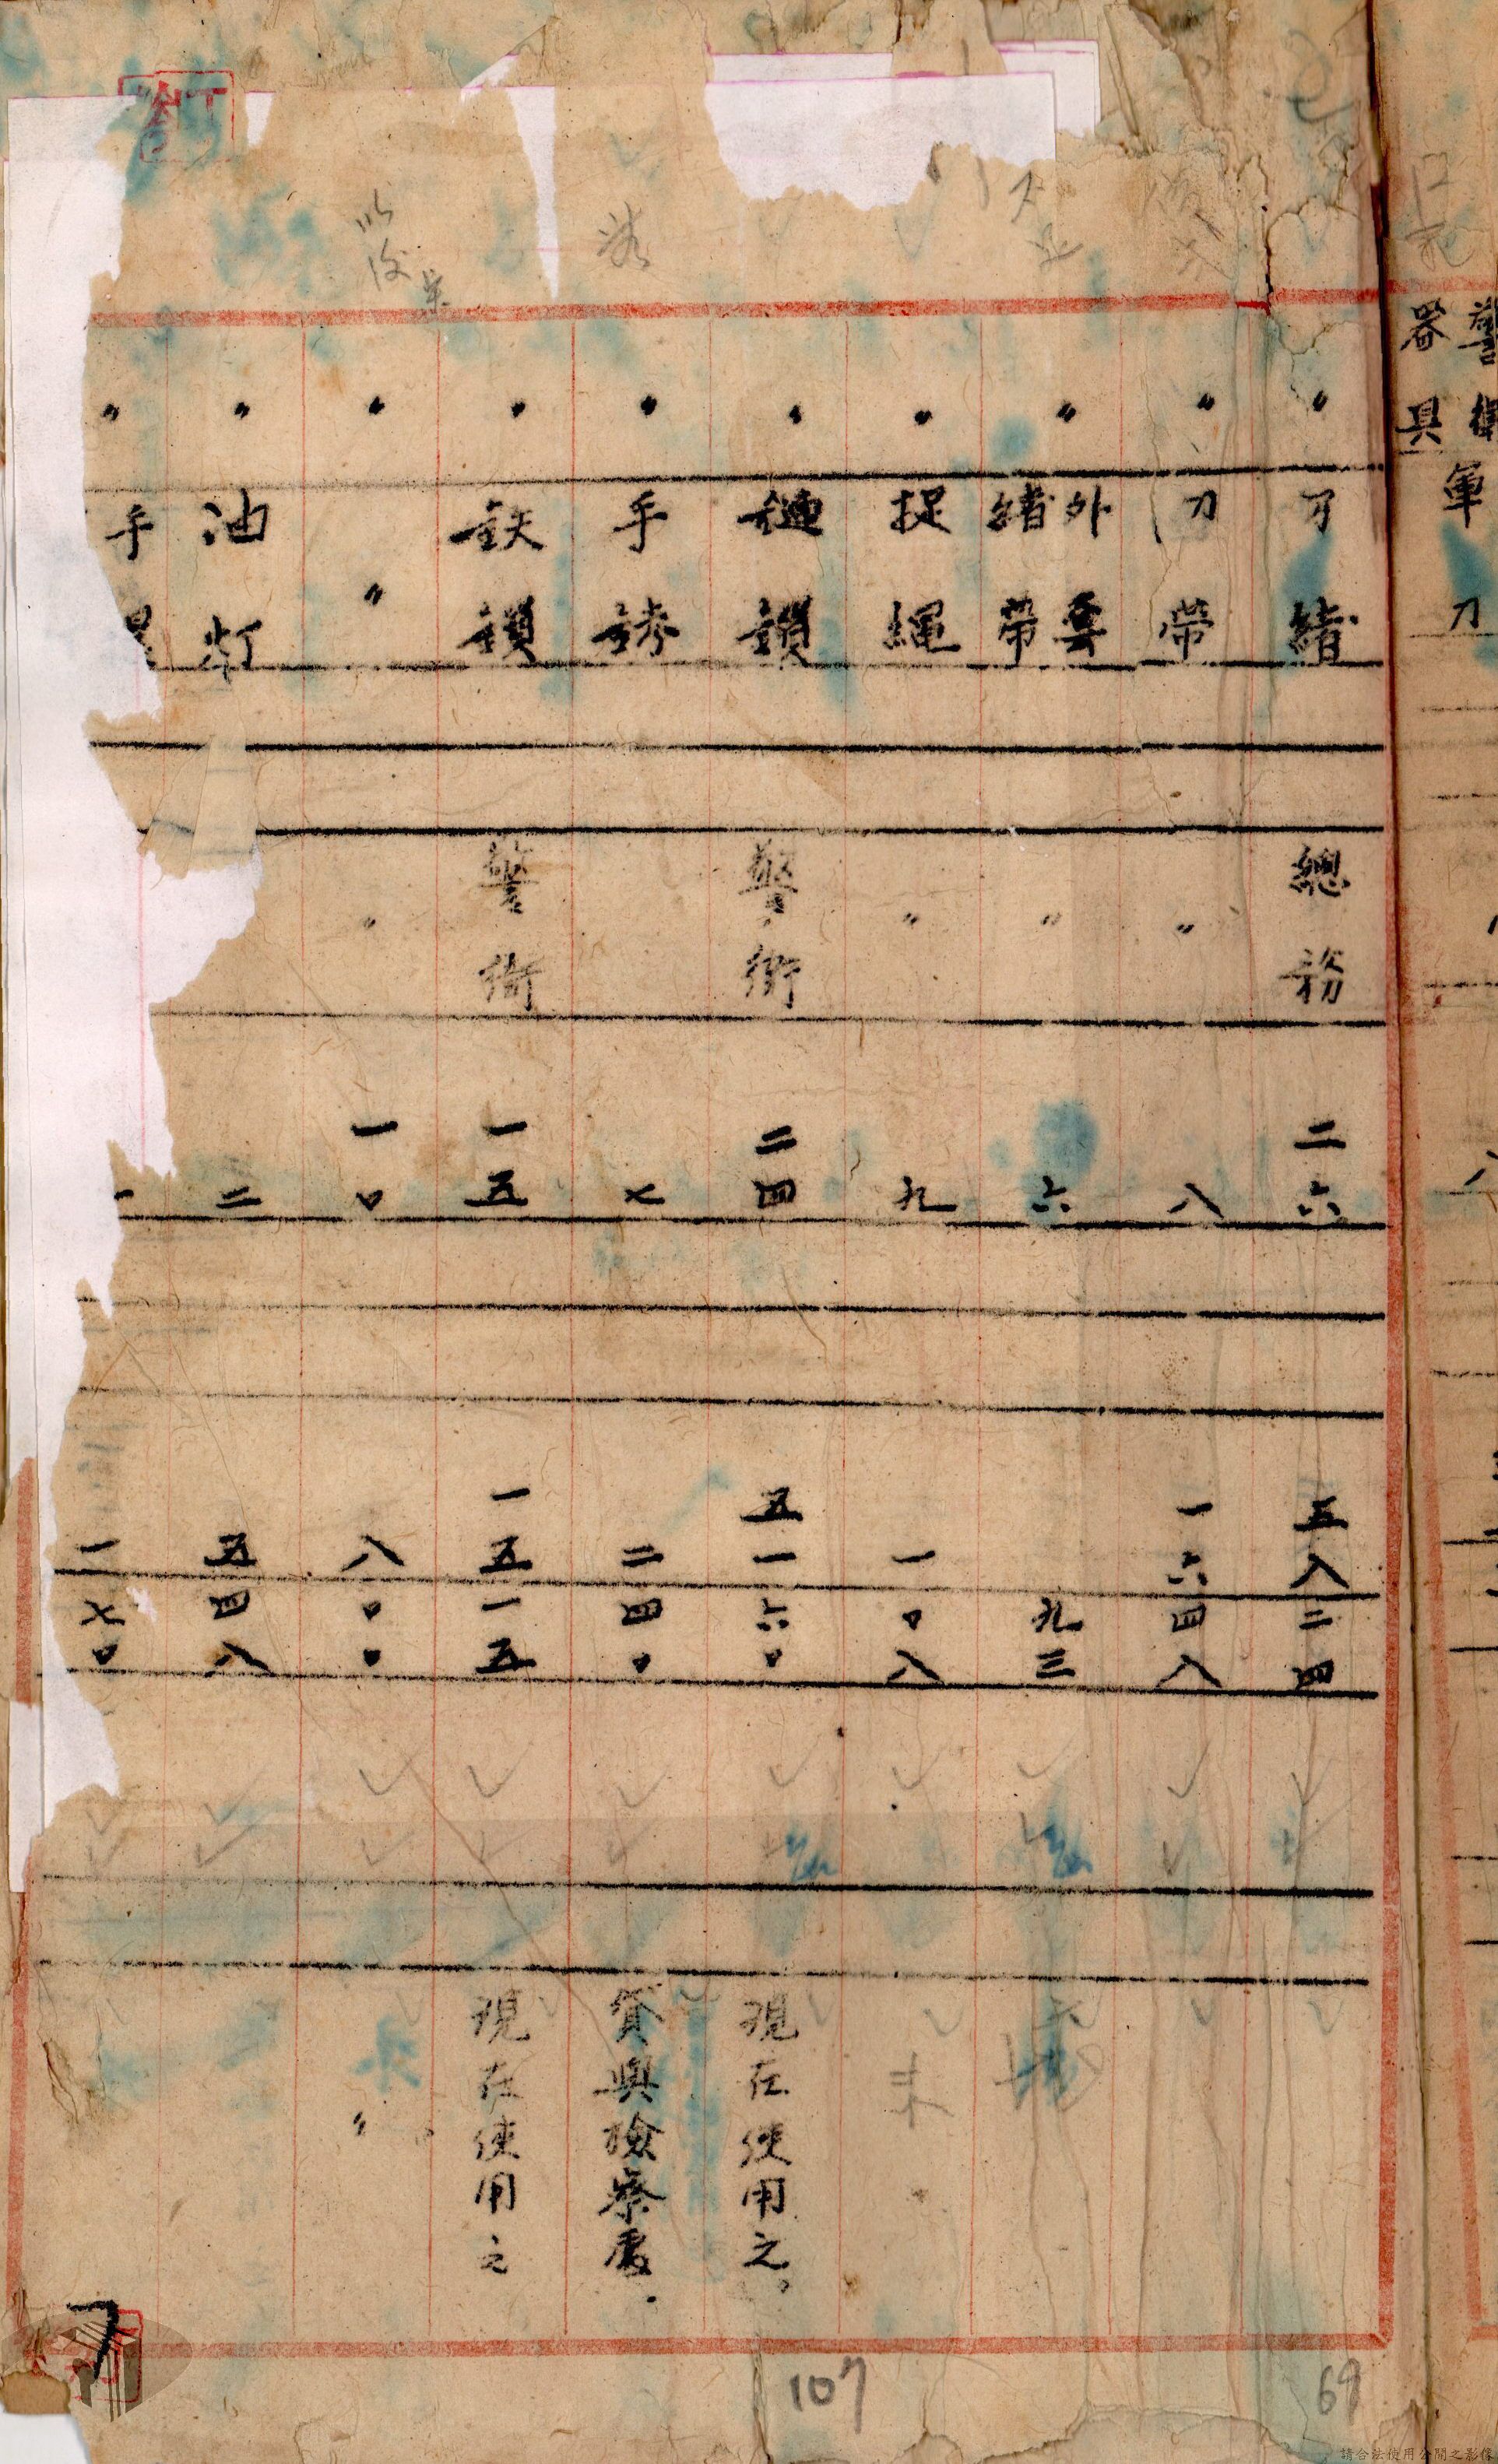 警備
器具
軍刀
〃 刀緒 總務 二六 五八二四
〃 刀帶 〃 八 一六四八
〃 外套 緒帶 〃 六 九三
〃 捉繩 〃 九 一〇八
〃 鏈鎖 警衛 二四 五一六〇 現在使用之。
〃 手銬 七 二四〇 貸與檢察處.
〃 鉄鎖 警衛 一五 一五一五 現在使用之
〃 〃 〃 一〇 八〇〇 〃
〃 油灯 二 五四八
〃 手 一 一七〇
107
69
請合法使用公開之影像